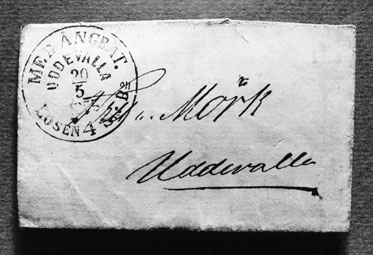 MED ÅNGBÅT.
UDDEVALLA
20
5
LÖSEN 4 Sk.Bº
Mörk
Uddevalla